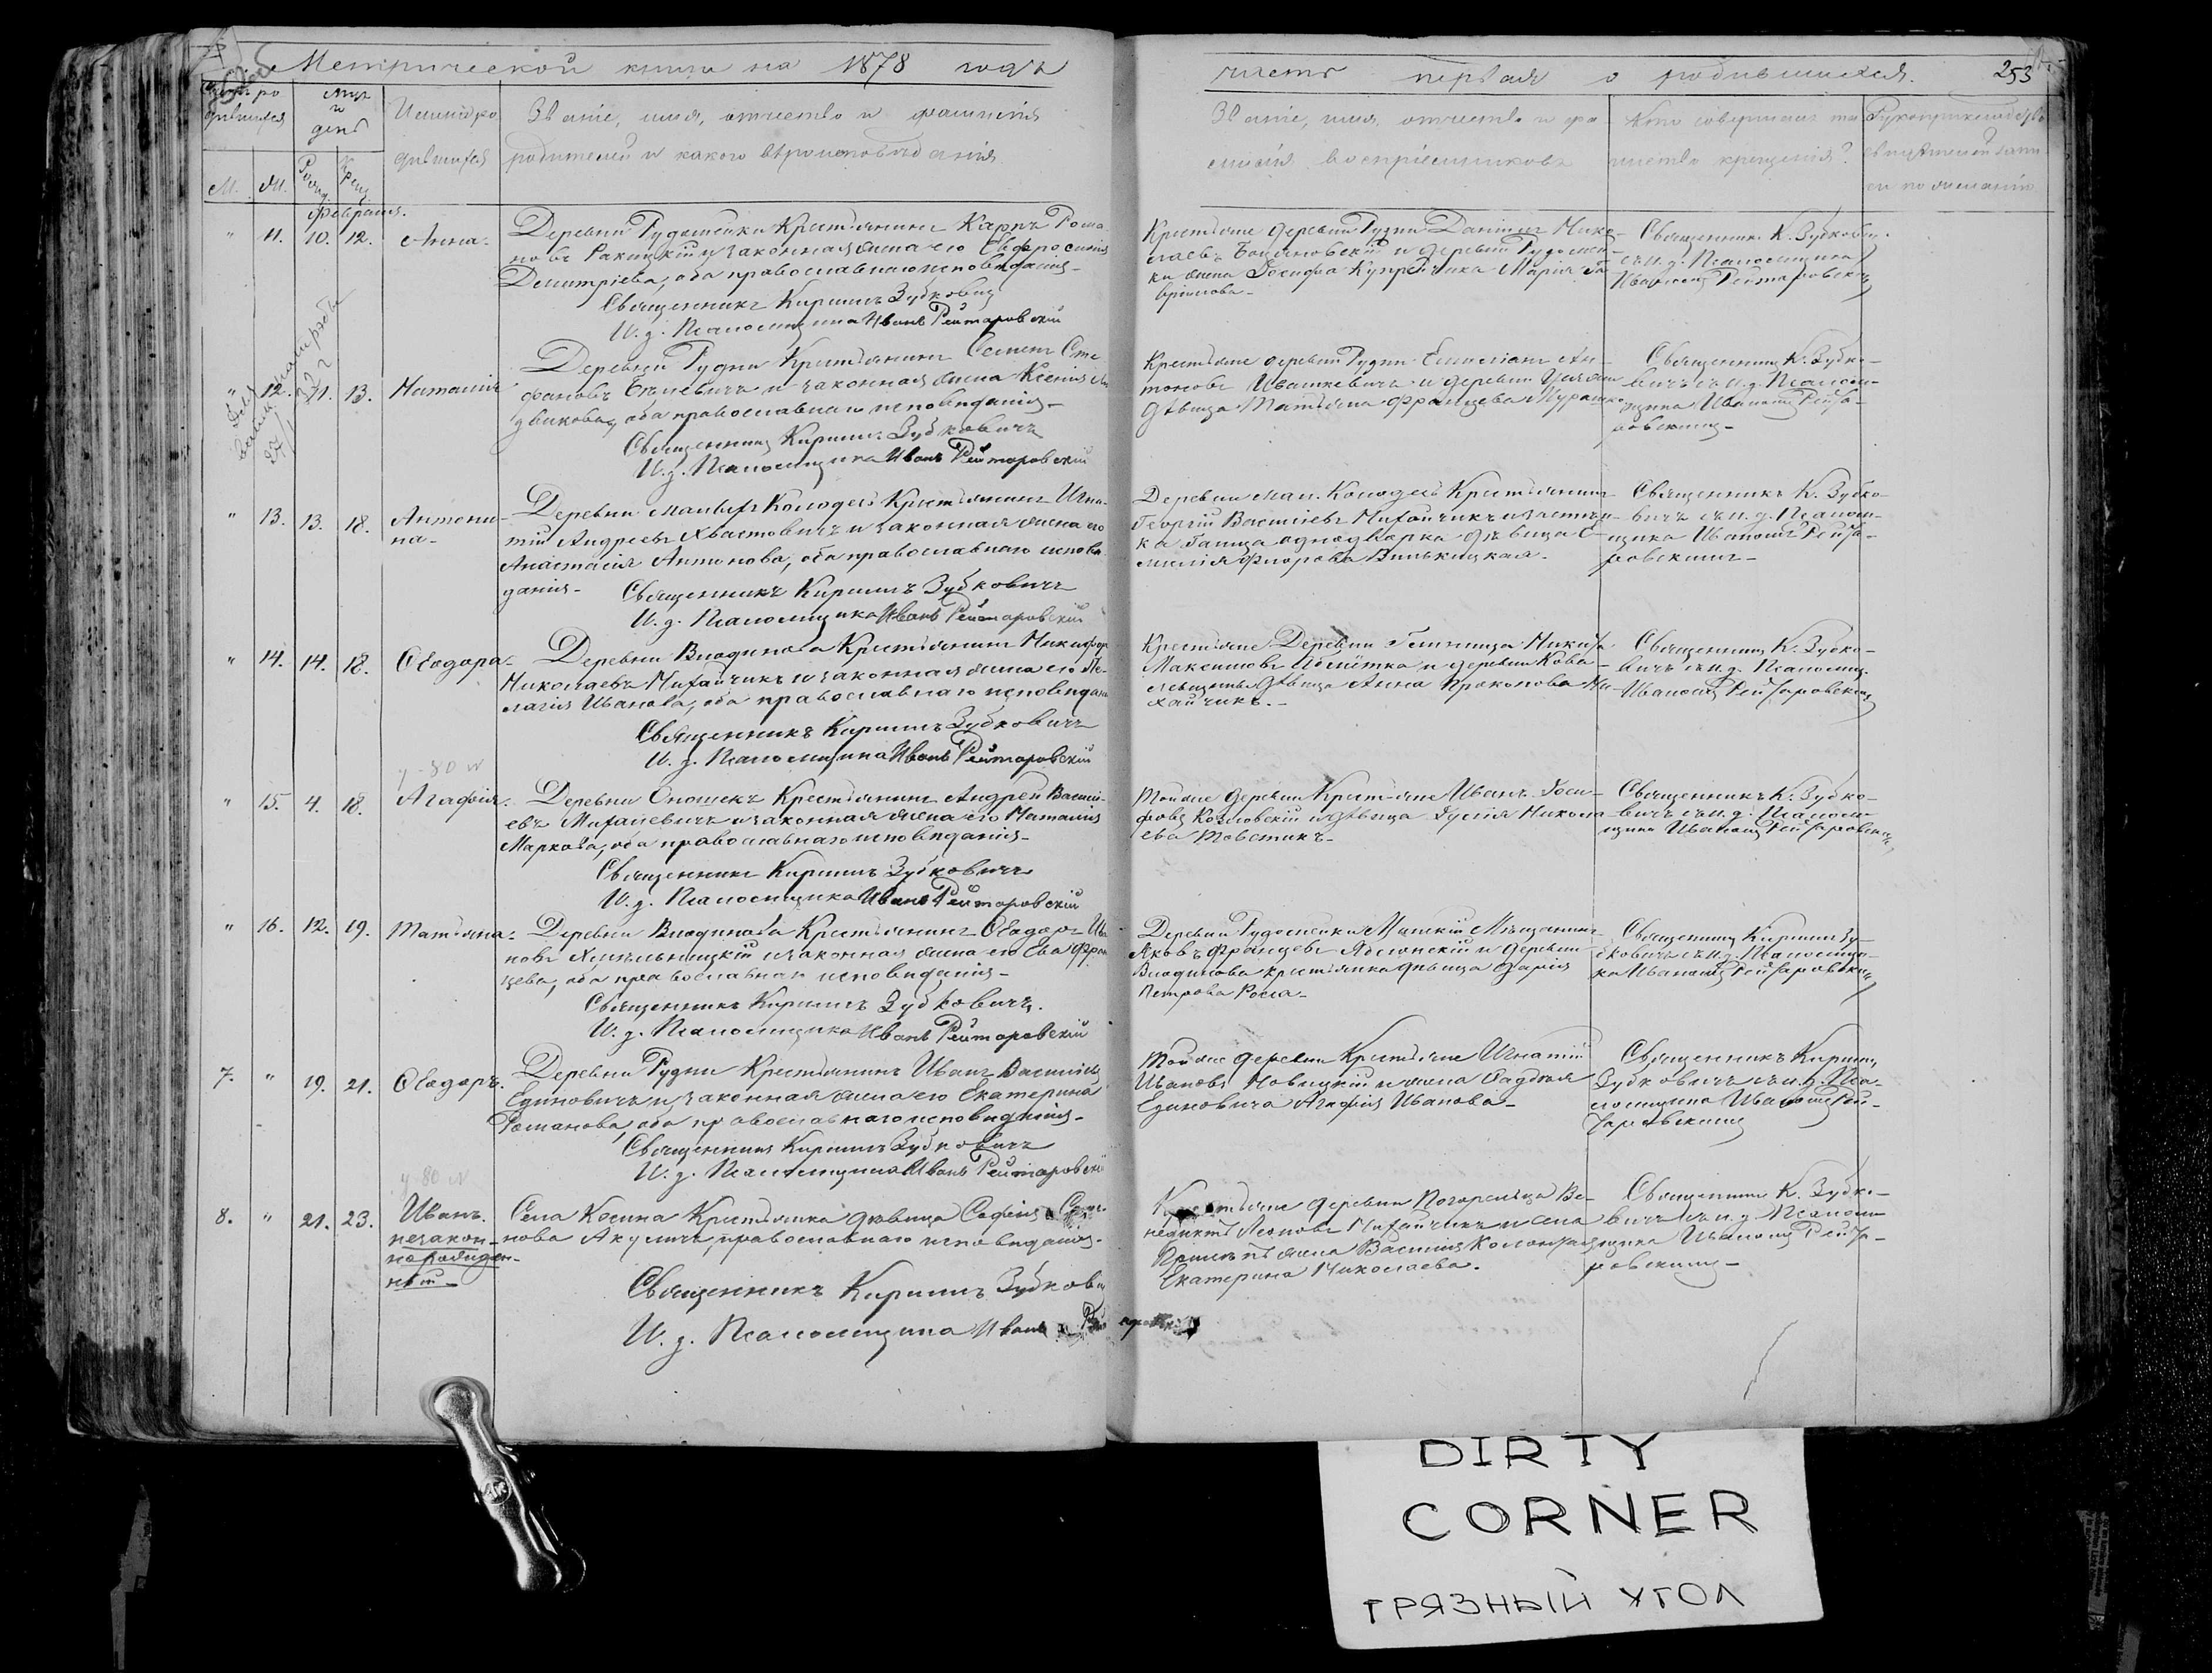 Метрической книги на 1878 годъ
часть первая о родившихся. 253
М. Ж.
мѣс. и день
Званіе, имя, отчество и фамилія
родителей и какого вѣроисповѣданія
Званіе, имя, отчество и фа
милія воспріемниковъ
Кто совершалъ та
инство крещенія?
Рукоприкладство
свидѣтелей запи
си по желанію
Февраля.
" 11. 10. 12. Анна.
Деревни Рудошейки Крестьянинъ Карпъ Рома
новъ Ракицкій и законная жена его Евфросинія
Димитріева, оба православнаго исповѣданія
Священникъ Кириллъ Зубковичъ
И. д. Псаломщика Иванъ Рейтаровскій
Крестьяне деревни Рудни Даніилъ Нико
лаевъ и деревни Рудошей
ки жена Іосифа Марія Га
врилова
Священникъ К. Зубкович.
съ и. д. Псаломщика
Иваномъ Рейтаровскимъ
" 12. 11. 13. Наталія
Деревни Рудни Крестьянинъ Семенъ Сте
фановъ и законная жена Ксенія
оба православнаго исповѣданія
Священникъ Кириллъ Зубковичъ
И. д. Псаломщика Иванъ Рейтаровскій
Крестьяне деревни Рудни Емиліанъ Ан
тоновъ Ивашкевичъ и деревни
дѣвица Татьяна Францева
Священникъ К. Зубко
вичъ съ и. д. Псалом
щика Иваномъ Рейта
ровскимъ
" 13. 13. 18. Антони
на
Деревни Малыхъ Колодезь Крестьянинъ Игна
тій Андреевъ Хвастовичъ и законная жена его
Анастасія Антонова, оба православнаго исповѣ
данія
Священникъ Кириллъ Зубковичъ
И. д. Псаломщика Иванъ Рейтаровскій
Деревни Мал. Колодезь Крестьянинъ
Георгій Василіевъ Михайчикъ и
однодворка дѣвица
Священникъ К. Зубко
вичъ съ и. д. Псалом
щика Иваномъ Рейта
ровскимъ
" 14. 14. 18. Ѳеодора
Деревни Владимова Крестьянинъ Никифоръ
Николаевъ Михайчикъ и законная жена его Пе
лагія Иванова, оба православнаго исповѣдан
Священникъ Кириллъ Зубковичъ
И. д. Псаломщика Иванъ Рейтаровскій
Крестьяне Деревни Никита
Максимовъ и деревни
дѣвица Анна Прокопова Ми
хайчикъ.
Священникъ К. Зубко
вичъ съ и. д. Псаломщ.
Иваномъ Рейтаровскимъ
у-80 N
" 15. 4. 18. Агафія
Деревни Крестьянинъ Андрей Василі
евъ Михалевичъ и законная жена его Наталія
Маркова, оба православнаго исповѣданія
Священникъ Кириллъ Зубковичъ
И. д. Псаломщика Иванъ Рейтаровскій
Той же деревни Крестьяне Иванъ Іоси
фовъ Козловскій и дѣвица Никола
ева Товстикъ
Священникъ К. Зубко
вичъ съ и. д. Псалом
щика Иваномъ Рейтаровскимъ
" 16. 12. 19. Татьяна
Деревни Владимова Крестьянинъ Ѳеодоръ Ива
новъ Хмѣльницкій и законная жена его Ева Фран
цева, оба православнаго исповѣданія
Священникъ Кириллъ Зубковичъ.
И. д. Псаломщика Иванъ Рейтаровскій
Деревни Рудошейки Минскій Мѣщанинъ
Яковъ Францевъ Яблонскій и деревни
Владимова крестьянка дѣвица Дарія
Петрова
Священникъ Кириллъ Зу
бковичъ съ и. д. Псаломщи
ка Иваномъ Рейтаровскимъ
7. " 19. 21. Ѳеодоръ.
Деревни Рудни Крестьянинъ Иванъ Василіевъ
Единовичъ и законная жена его Екатерина
Романова, оба православнаго исповѣданія
Священникъ Кириллъ Зубковичъ
И. д. Псаломщика Иванъ Рейтаровскій
Той же деревни Крестьяне Игнатій
Ивановъ Новицкій и жена Фаддея
Единовича Агафія Иванова
Священникъ Кириллъ
Зубковичъ съ и. д. Пса
ломщика Иваномъ Рей
таровскимъ
у-80 N
8. " 21. 23. Иванъ.
незакон
норожден
ный
Села Косина Крестьянка дѣвица Софія Семе
нова Акуличъ, православнаго исповѣданія.
Священникъ Кириллъ Зубкович
И. д. Псаломщика Иванъ
Крестьяне деревни Погорельца Ве
недиктъ Леоновъ Михайчикъ и села
жена Василія
Екатерина Николаева.
Священникъ К. Зубко
вичъ съ и. д. Псалом
щика Иваномъ Рейта
ровскимъ
DIRTY
CORNER
ГРЯЗНЫЙ УГОЛ